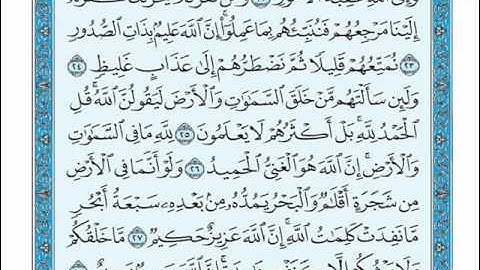 إِلَيْنَا مَرْجِعُهُمْ فَنُنَبِّئُهُم بِمَا عَمِلُوٓا۟ ۚ إِنَّ ٱللَّهَ عَلِيمٌۢ بِذَاتِ ٱلصُّدُورِ
۝٢٣ نُمَتِّعُهُمْ قَلِيلًا ثُمَّ نَضْطَرُّهُمْ إِلَىٰ عَذَابٍ غَلِيظٍ ۝٢٤
وَلَئِن سَأَلْتَهُم مَّنْ خَلَقَ ٱلسَّمَٰوَٰتِ وَٱلْأَرْضَ لَيَقُولُنَّ ٱللَّهُ ۚ قُلِ
ٱلْحَمْدُ لِلَّهِ ۚ بَلْ أَكْثَرُهُمْ لَا يَعْلَمُونَ ۝٢٥ لِلَّهِ مَا فِى ٱلسَّمَٰوَٰتِ
وَٱلْأَرْضِ ۚ إِنَّ ٱللَّهَ هُوَ ٱلْغَنِىُّ ٱلْحَمِيدُ ۝٢٦ وَلَوْ أَنَّمَا فِى ٱلْأَرْضِ
مِن شَجَرَةٍ أَقْلَٰمٌ وَٱلْبَحْرُ يَمُدُّهُۥ مِنۢ بَعْدِهِۦ سَبْعَةُ أَبْحُرٍ
مَّا نَفِدَتْ كَلِمَٰتُ ٱللَّهِ ۗ إِنَّ ٱللَّهَ عَزِيزٌ حَكِيمٌ ۝٢٧ مَّا خَلْقُكُمْ